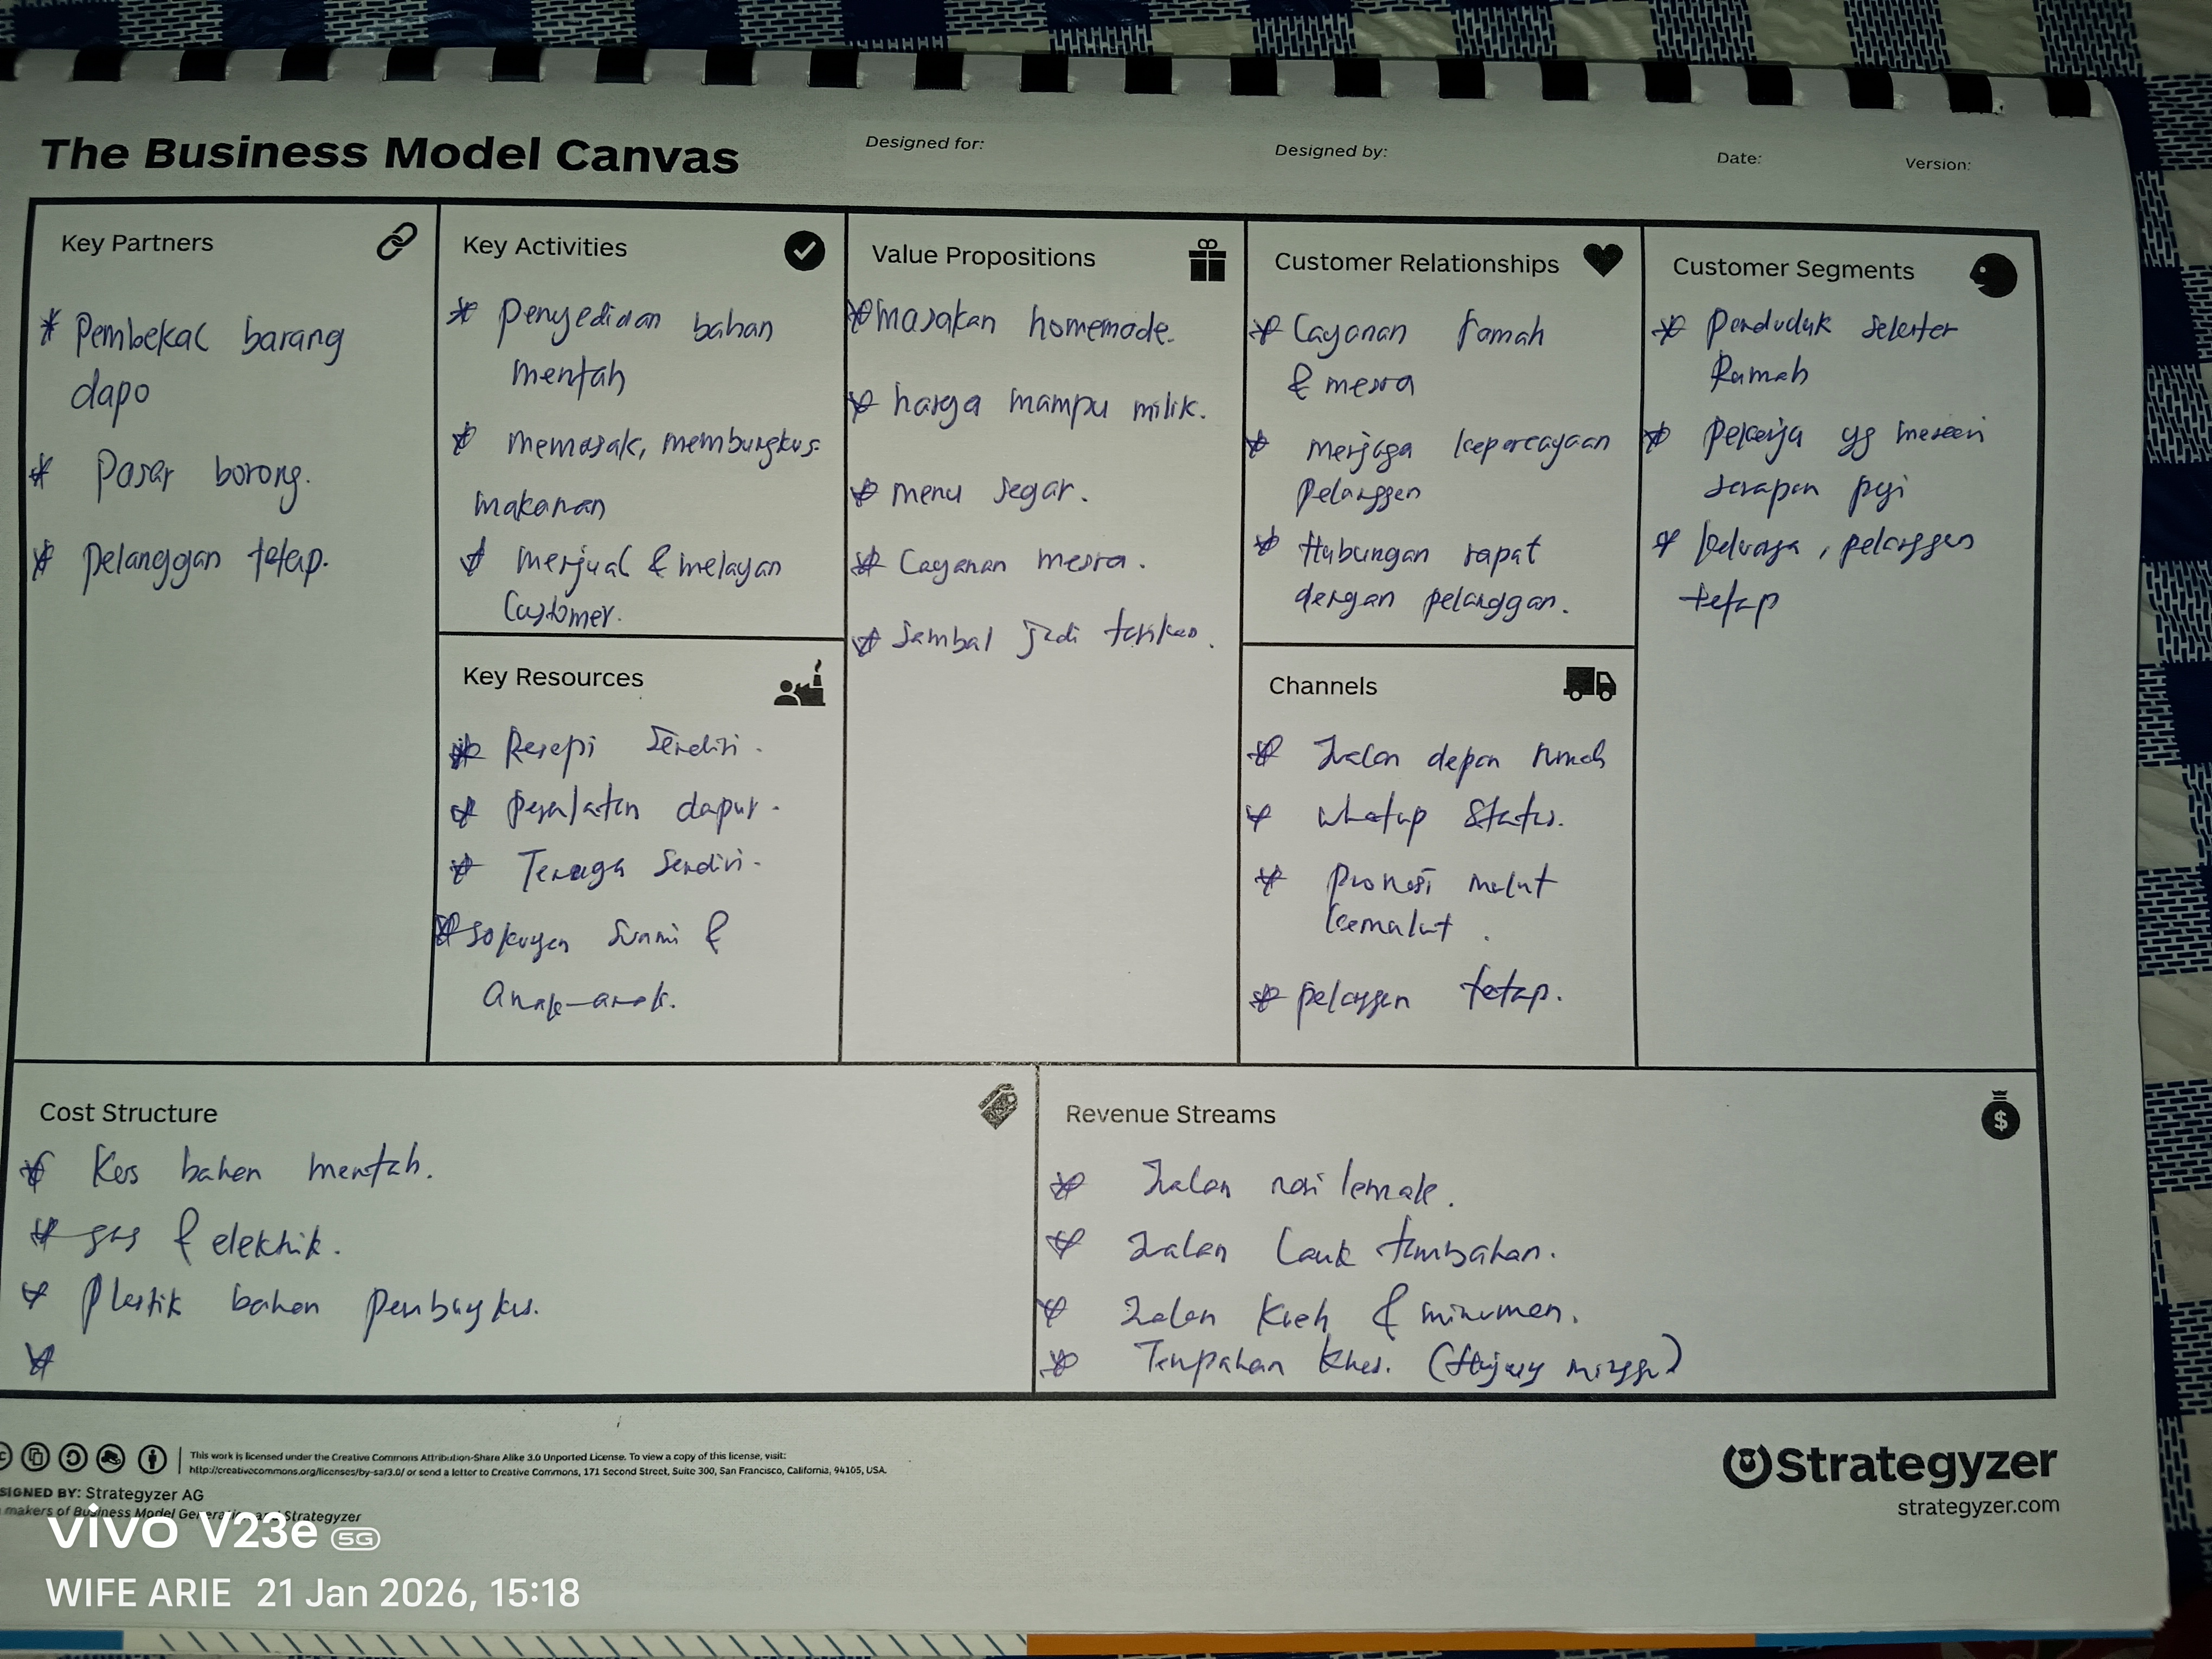 The Business Model Canvas
Designed for:
Designed by:
Date:
Version:
Key Partners
* Pembekal barang
dapo
* Pasar borong.
* Pelanggan tetap.
Key Activities
* Penyediaan bahan
mentah
* memasak, membungkus
makanan
* menjual & melayan
Customer.
Key Resources
* Resepi Sendiri.
* Peralatan dapur.
* Tenaga Sendiri.
* Sokongan Suami &
Anak-anak.
Value Propositions
* masakan homemade.
* harga mampu milik.
* menu segar.
* Layanan mesra.
* Sambal jadi tarikan.
Customer Relationships
* Layanan ramah
& mesra
* menjaga kepercayaan
Pelanggan
* Hubungan rapat
dengan pelanggan.
Channels
* Jualan depan rumah
* whatap Status.
* Promosi mulut
kemulut.
* pelanggan tetap.
Customer Segments
* Penduduk sekitar
Rumah
* Pekerja yg mencari
sarapan pagi
* keluarga, pelanggan
tetap
Cost Structure
* Kos bahan mentah.
* gas & elektrik.
* Plastik bahan pembungkus.
*
Revenue Streams
* Jualan nasi lemak.
* Jualan Lauk tambahan.
* Jualan Kueh & minuman.
* Tempahan khas. (Hujung minggu)
This work is licensed under the Creative Commons Attribution-Share Alike 3.0 Unported License. To view a copy of this license, visit:
http://creativecommons.org/licenses/by-sa/3.0/ or send a letter to Creative Commons, 171 Second Street, Suite 300, San Francisco, California, 94105, USA.
SIGNED BY: Strategyzer AG
makers of Business Model Generation and Strategyzer
Strategyzer
strategyzer.com
vivo V23e 5G
WIFE ARIE 21 Jan 2026, 15:18